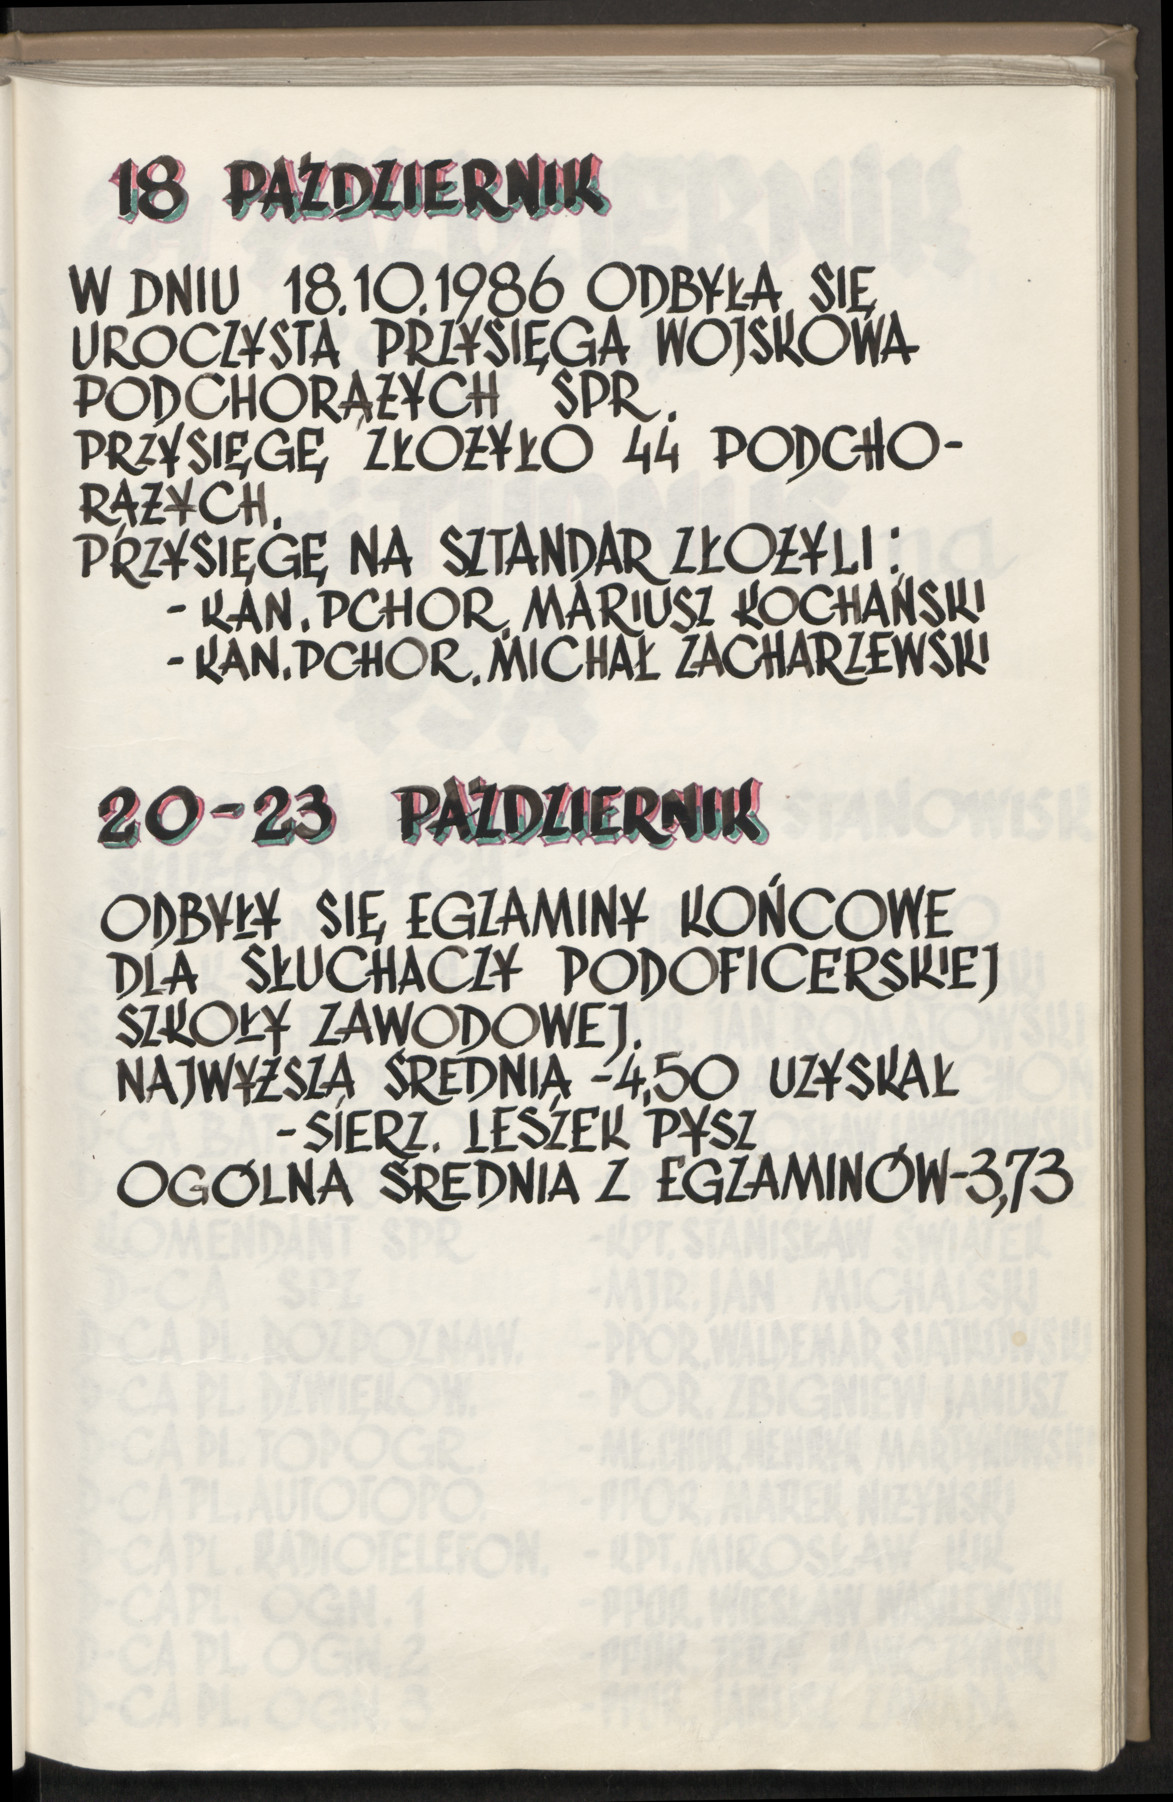 18 PAŹDZIERNIK
W DNIU 18.10.1986 ODBYŁA SIĘ
UROCZYSTA PRZYSIĘGA WOJSKOWA
PODCHORĄŻYCH SPR.
PRZYSIĘGĘ ZŁOŻYŁO 44 PODCHO-
RĄŻYCH.
PRZYSIĘGĘ NA SZTANDAR ZŁOŻYLI:
- KAN. PCHOR. MARIUSZ KOCHAŃSKI
- KAN. PCHOR. MICHAŁ ZACHARZEWSKI
20-23 PAŹDZIERNIK
ODBYŁY SIĘ EGZAMINY KOŃCOWE
DLA SŁUCHACZY PODOFICERSKIEJ
SZKOŁY ZAWODOWEJ.
NAJWYŻSZĄ ŚREDNIĄ - 4,50 UZYSKAŁ
- SIERZ. LESZEK PYSZ
OGÓLNA ŚREDNIA Z EGZAMINÓW-3,73